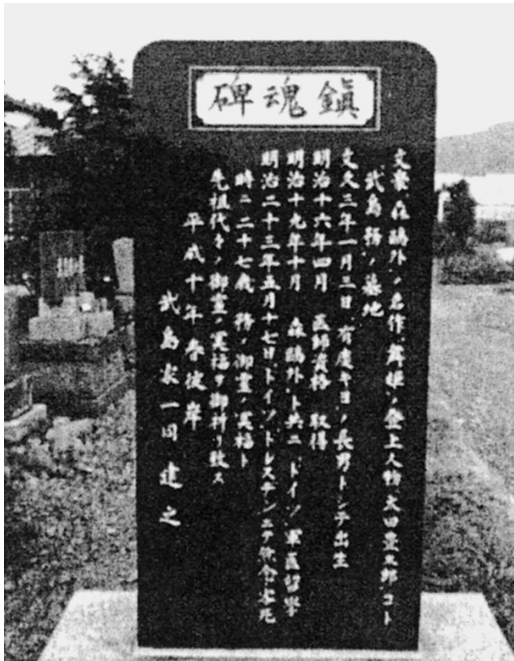 鎮魂碑
文豪森鴎外ノ名作「舞姫」ノ登上人物太田豊太郎コト
武島務ノ墓地
文久三年一月三日 有慶キヨノ長男トシテ出生
明治十六年四月 医師資格 取得
明治十九年十月 森鴎外ト共ニ ドイツ 軍医留学
明治二十三年五月十七日ドイツ ドレスデンニテ 客死
時ニ二十七歳 務ノ御霊ノ冥福ト
先祖代々ノ御霊ノ冥福ヲ御祈リ致ス
平成十年 春彼岸
武島家一同 建之